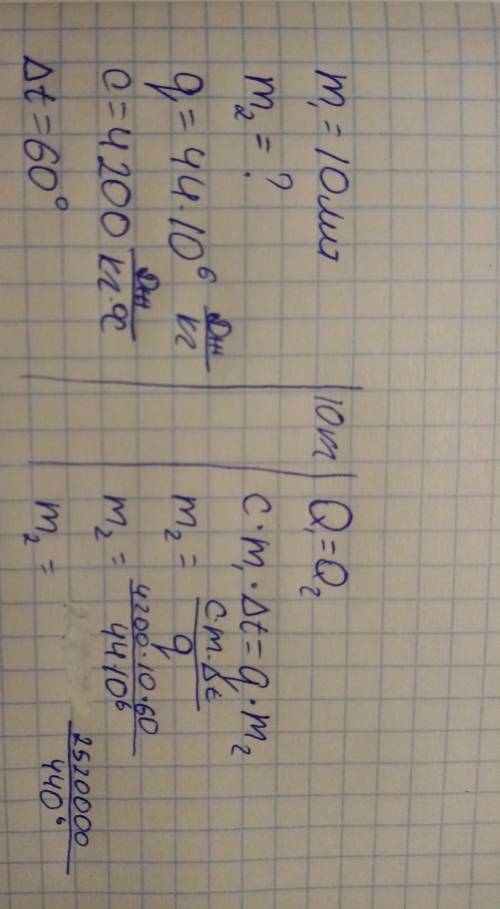 m₁ = 10 лит
m₂ = ?
q = 44·10⁶ Дж/кг
c = 4200 Дж/кг·°C
Δt = 60°
10 кг
Q₁ = Q₂
c·m₁·Δt = q·m₂
m₂ = c·m·Δt/q
m₂ = 4200·10·60/44·10⁶
m₂ = 2520000/440⁶